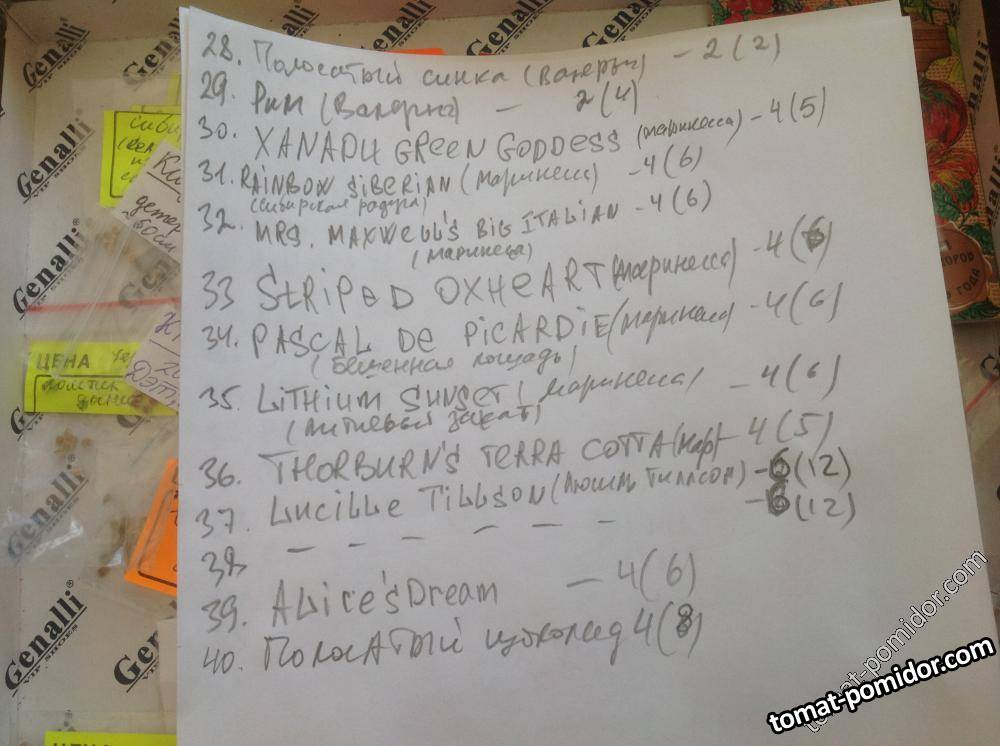 28. Полосатый синка (Валеры) - 2 (2)
29. Рим (Валерна) - 2 (4)
30. XANADU GREEN GODDESS (маринесса) - 4 (5)
31. RAINBOW SiBERiAN (маринесса) - 4 (6)
(сибирская радуга)
32. MRS. MAXWELL'S BIG ITALIAN - 4 (6)
(маринеса)
33 STRiPED OXHEART (маринесса) - 4 (6)
34. PASCAL De PiCARDiE (маринесса) - 4 (6)
(Бешенная лошадь)
35. LiTHiUM SUNSET (маринесса) - 4 (6)
(литиевый закат)
36. THORBURN'S TERRA COTTA (мар) - 4 (5)
37. LUCiLLE TiLLSON (Люсиль Тиллсон) - 6 (12)
38 - - - - - - - 6 (12)
39. ALice's Dream - 4 (6)
40. Полосатый шоколад 4 (8)
Genalli
VIP SHOES
ЦЕНА
tomat-pomidor.com
tomat-pomidor.com